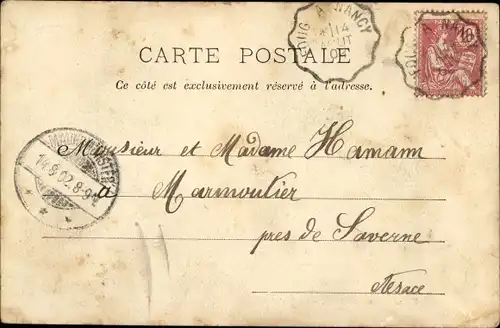 FOUG A NANCY
14
AOUT
02
10
CARTE POSTALE
Ce côté est exclusivement réservé à l'adresse.
Monsieur et Madame Hamann
14.8.02. 8-9V.
à Marmoutier
près de Saverne
Alsace